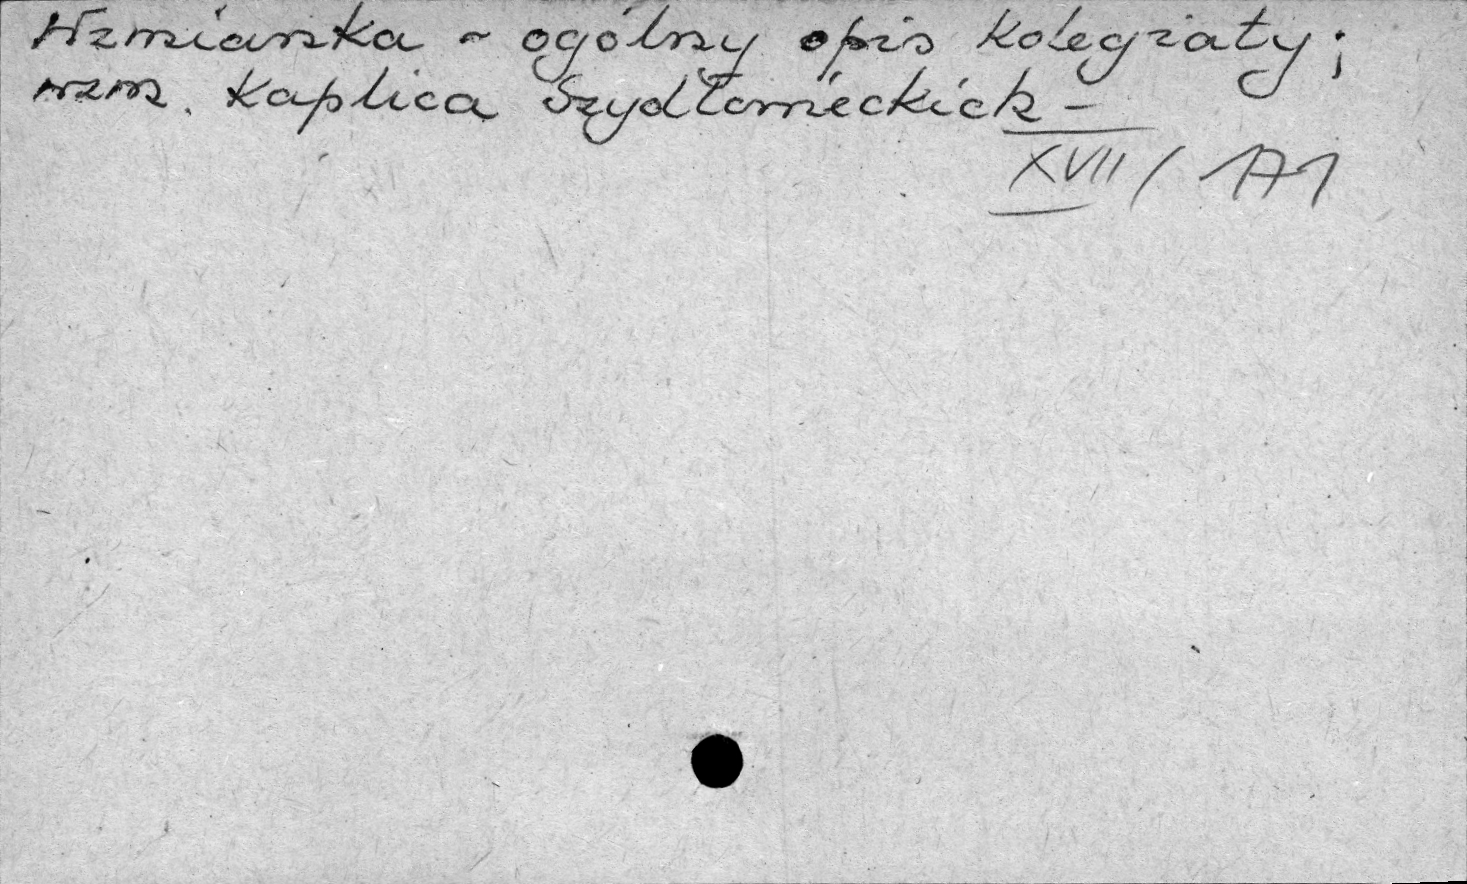 Wzmianka - ogólny opis Kolegiaty;
wzm. Kaplica Szydłowieckich -
XVII / 171